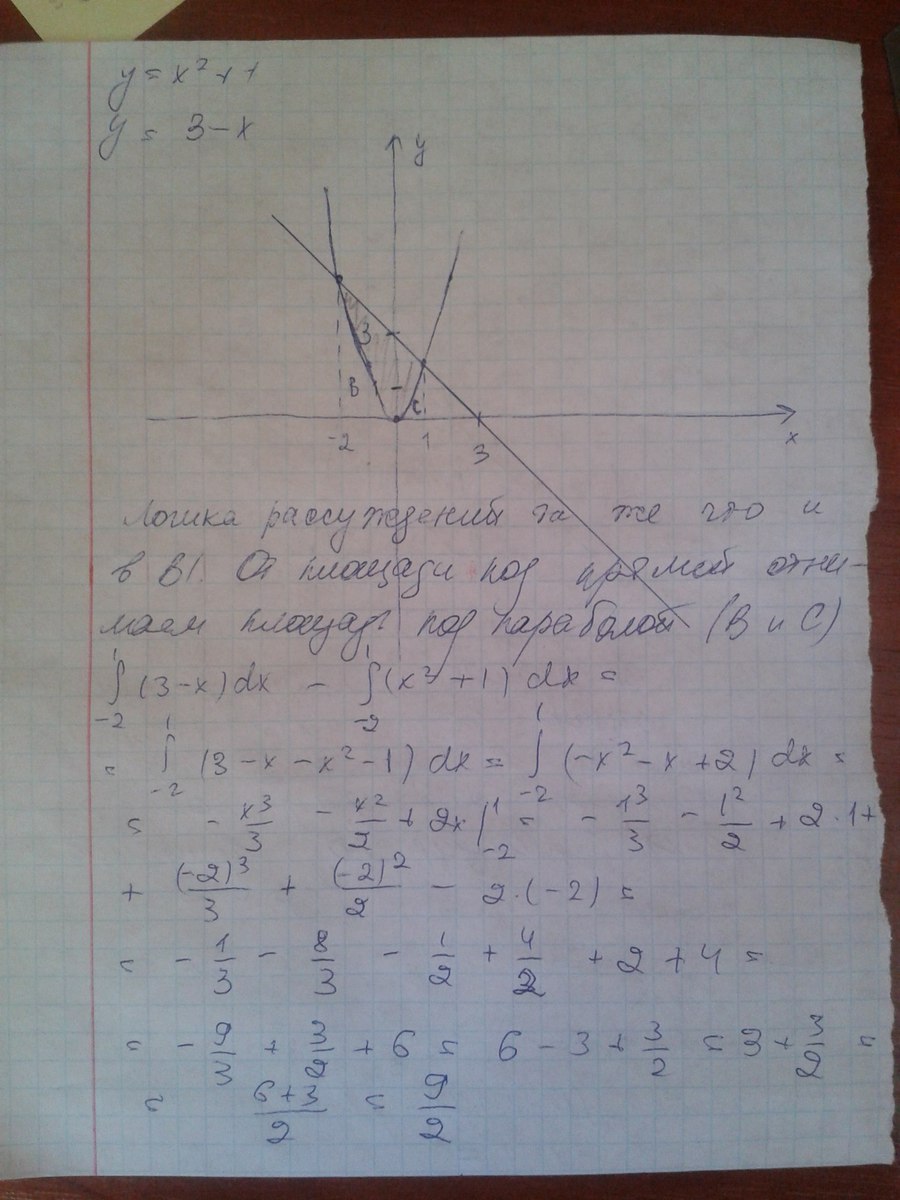 y = x² + 1
y = 3 - x
y
3
B
C
-2 1 3 x
Логика рассуждений та же что и
в B1. От площади под прямой отни-
маем площадь под параболой (B и C)
∫₋₂¹ (3-x) dx - ∫₋₂¹ (x² + 1) dx =
= ∫₋₂¹ (3 - x - x² - 1) dx = ∫₋₂¹ (-x² - x + 2) dx =
= - x³/3 - x²/2 + 2x |₋₂¹ = - 1³/3 - 1²/2 + 2·1 +
+ (-2)³/3 + (-2)²/2 - 2·(-2) =
= - 1/3 - 8/3 - 1/2 + 4/2 + 2 + 4 =
= - 9/3 + 3/2 + 6 = 6 - 3 + 3/2 = 3 + 3/2 =
= (6+3)/2 = 9/2